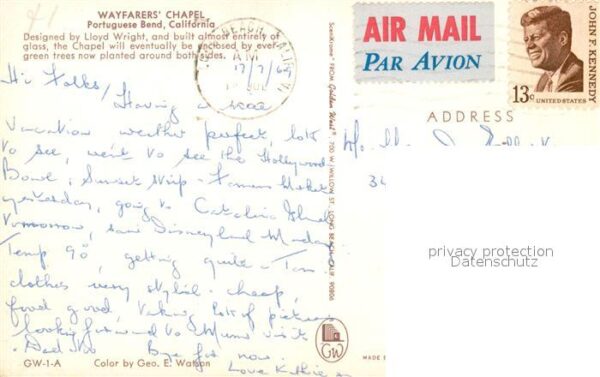 WAYFARERS' CHAPEL
Portuguese Bend, California
Designed by Lloyd Wright, and built almost entirely of
glass, the Chapel will eventually be enclosed by ever-
green trees now planted around both sides.
AM
Hi Folks/ Having a nice
Vacation weather perfect, lots
to see, went to see the Hollywood
Bowl, Sunset Strip - Farmers Market
yesterday, going to Catalina Island
tomorrow, saw Disneyland Monday
Temp 90°, getting quite a Tan.
clothes very stylish - cheap,
food good, taking lots of pictures
looking forward to Mums visit
Dad too Bye for now.
Love Kathie
GW-1-A Color by Geo. E. Watson
Scenicrome* FROM Golden West* 700 W. WILLOW ST. LONG BEACH, CALIF. 90806
GW
AIR MAIL
PAR AVION
JOHN F. KENNEDY
13c UNITED STATES
ADDRESS
privacy protection
Datenschutz
MADE